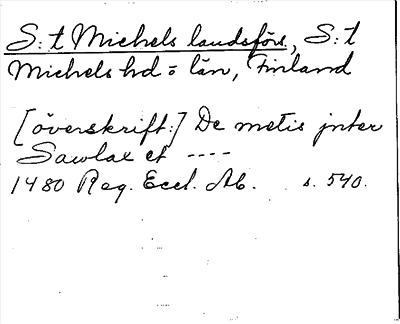 S:t Michels landsförs, S:t
Michels hd o län, Finland
[överskrift:] De metis jnter
Sawlax et ----
1480 Reg. Eccl. Ab. s. 540.